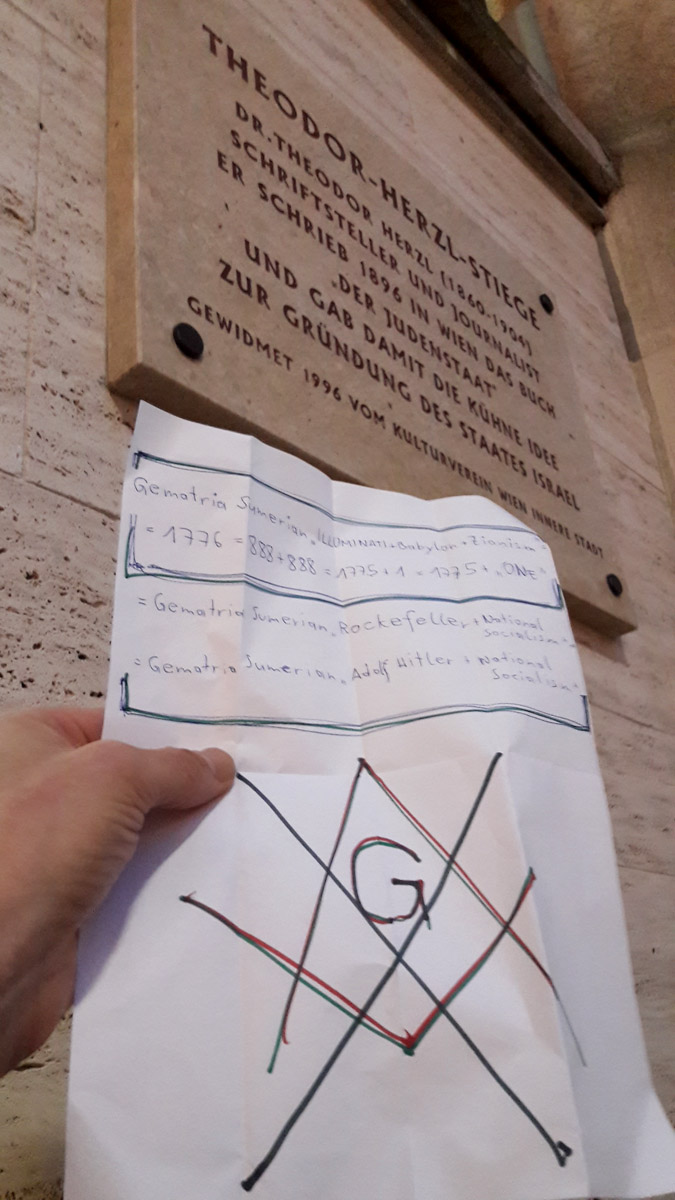 THEODOR-HERZL-STIEGE
DR. THEODOR HERZL (1860-1904)
SCHRIFTSTELLER UND JOURNALIST
ER SCHRIEB 1896 IN WIEN DAS BUCH
„DER JUDENSTAAT"
UND GAB DAMIT DIE KÜHNE IDEE
ZUR GRÜNDUNG DES STAATES ISRAEL
GEWIDMET 1996 VOM KULTURVEREIN WIEN INNERE STADT
Gematria Sumerian „ILLUMINATI+Babylon+Zionism"
= 1776 = 888+888 = 1775+1 = 1775+„ONE"
= Gematria Sumerian „Rockefeller+National
Socialism"
= Gematria Sumerian „Adolf Hitler + National
Socialism"
G